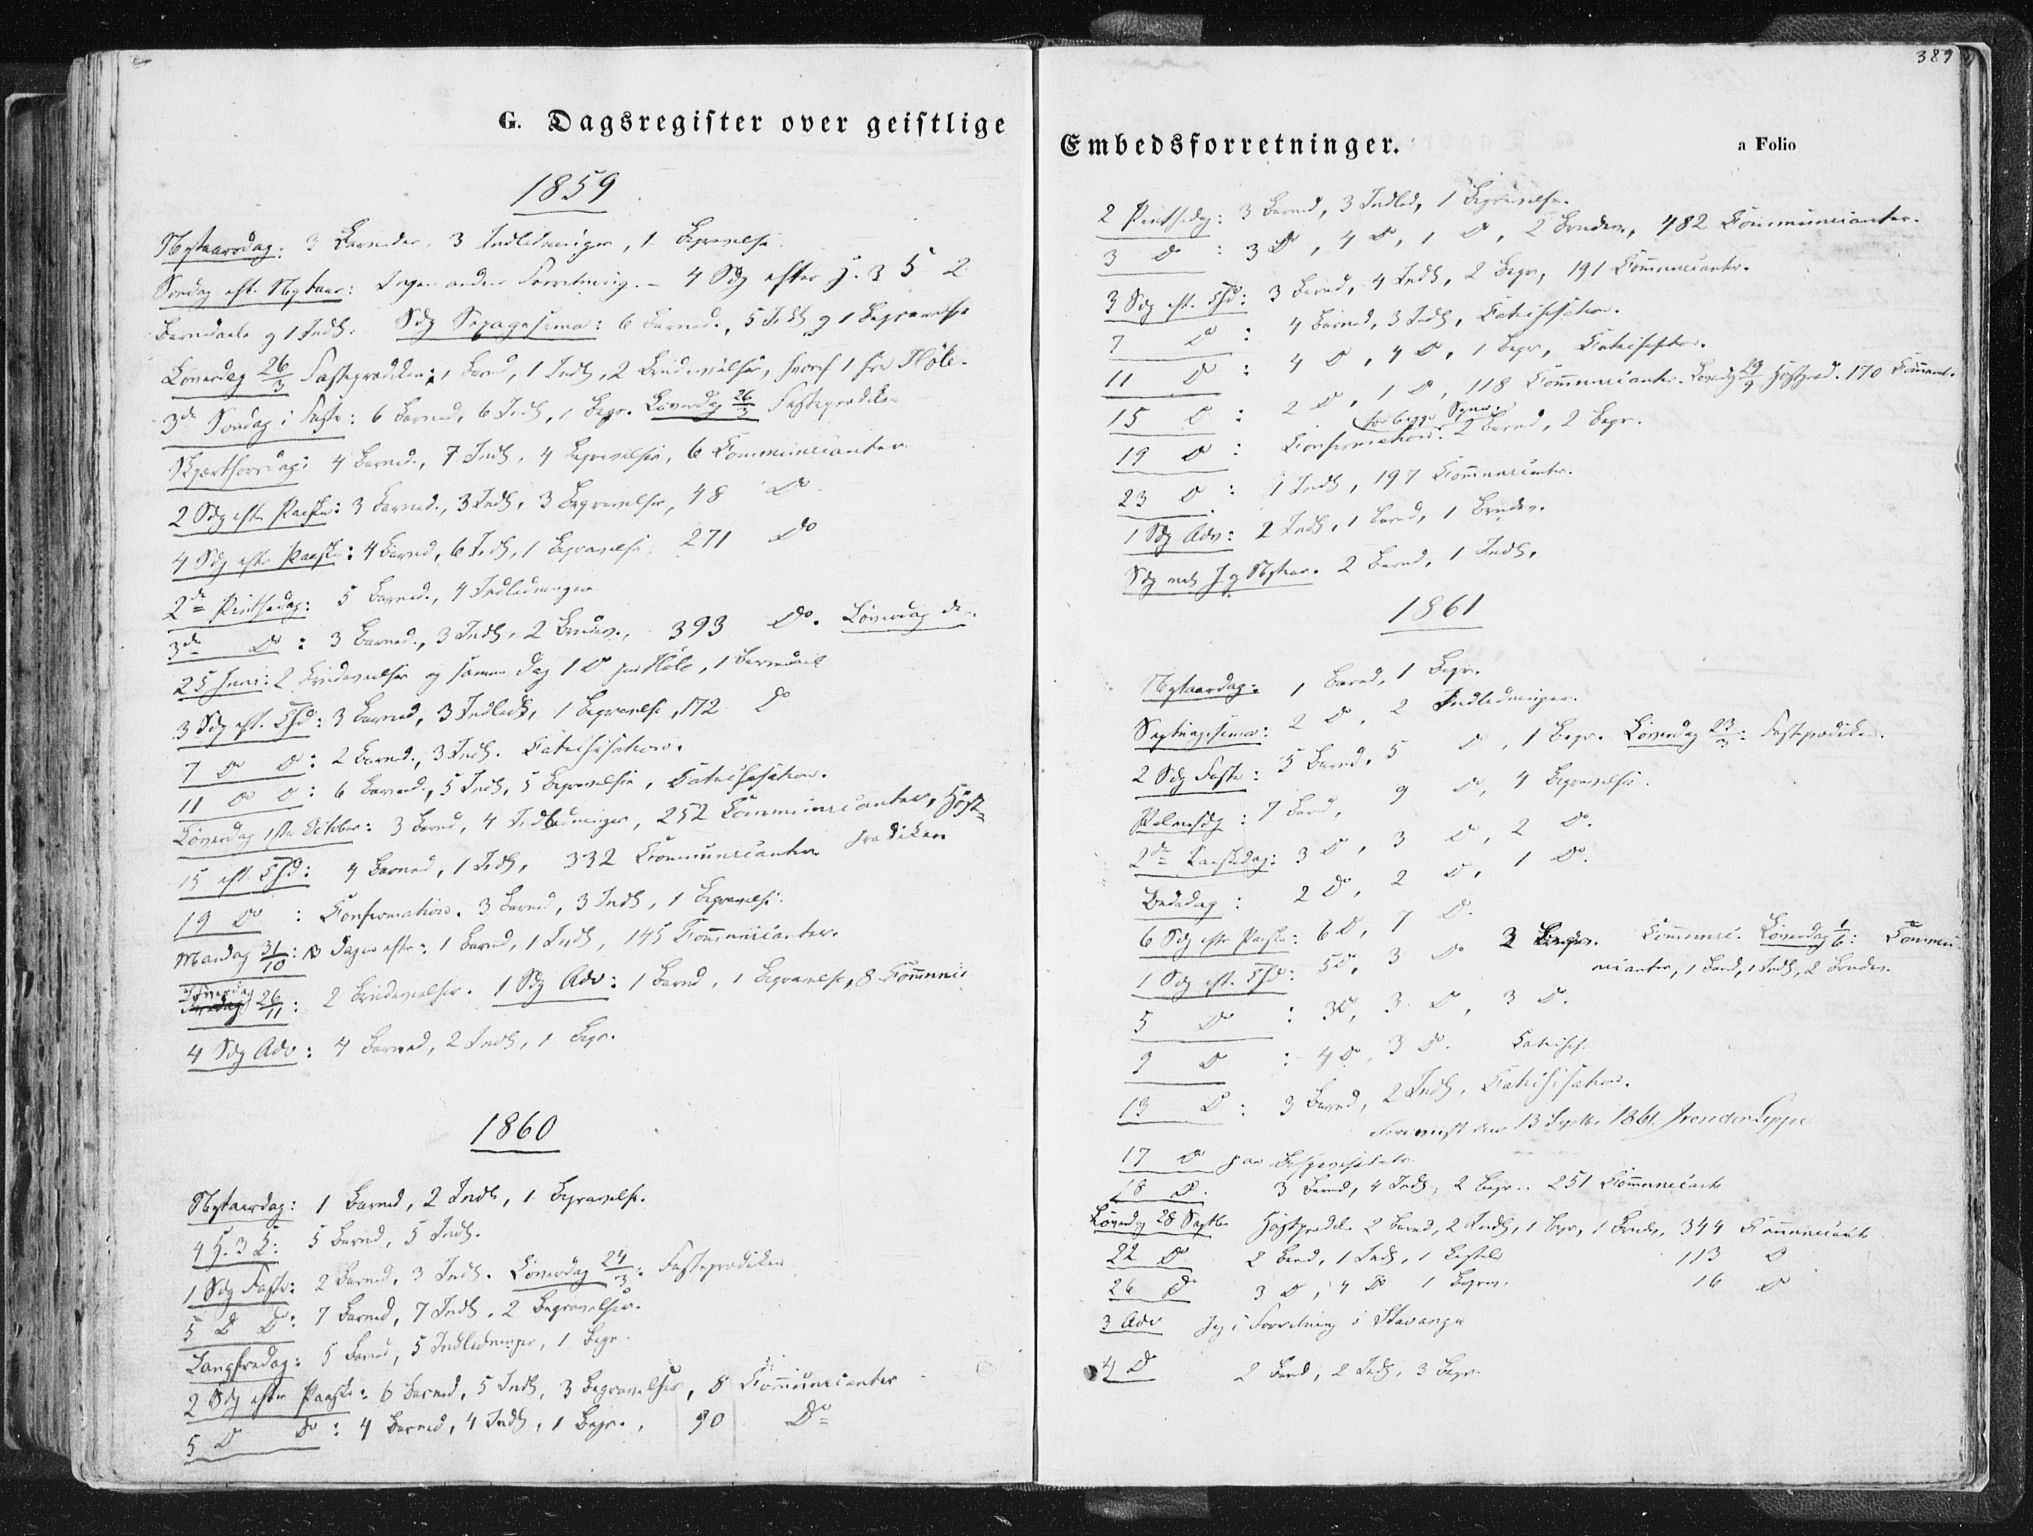 389
G. Dagsregister over geistlige
Embedsforretninger.
a Folio
1859
Nytaarsdag: 3 Barneder, 3 Indledninger, 1 Begravelse.
Søndag eft. Nytaar: Ingen anden Forretning. – 4 Sdg efter H. 3 K 2
Barnedaab og 1 Indl: Sdg Sexagesima: 6 Barned., 5 Indl og 1 Begravelse
Løverdag 26/3 Fasteprædiken: 1 Barnd, 1 Indl, 2 Brudevielser, hvoraf 1 fra Høle.
3de Søndag i Faste: 6 Barned, 6 Indl, 1 Begr. Løverdag 26/3 Fasteprædiken
Skjærthorsdag: 4 Barned., 7 Indl, 4 Begravelser, 6 Communicanter
2 Sdg eft. Paaske: 3 Barned., 3 Indl, 3 Begravelser, 48 Do
4 Sdg eft. Paaske: 4 Barned, 6 Indl, 1 Begravelse, 271 Do
2de Pintsedag: 5 Barned., 4 Indledninger
3de Do: 3 Barned., 3 Indl, 2 Brudev., 393 Do. Løverdag d.
25 Juni: 2 Brudevielser og samme Dag 1 Do paa Høle, 1 Barnedaab
3 Sdg eft. Tfd: 3 Barned, 3 Indleds, 1 Begravelse, 172 Do
7 Do Do: 2 Barned., 3 Indl. Catechisation.
11 Do Do: 6 Barned., 5 Indl, 5 Begravelser, Catechisation.
Løverdag 1ste October: 3 Barned, 4 Indledninger, 252 Communicanter, Høst=
prædiken
15 eft. Tfd: 4 Barned, 1 Indl, 332 Communicanter
19 Do: Confirmation. 3 Barned, 3 Indl, 1 Begravelse.
Mandag 31/10: Dagen efter: 1 Barned, 1 Indl, 145 Communicanter.
Løverdag
26/11: 2 Brudevielser. 1 Sdg Adv: 1 Barned, 1 Begravelse, 8 Communi
4 Sdg Adv: 4 Barned, 2 Indl, 1 Begr.
1860
Nytaarsdag: 1 Barned, 2 Indl, 1 Begravelse.
4 H. 3 K: 5 Barned, 5 Indl.
1 Sdg Faste: 2 Barned, 3 Indl. Løverdag 24/3: Fasteprædiken
5 Do Do: 7 Barned, 7 Indl, 2 Begravelser.
Langfredag: 5 Barned, 5 Indledninger, 1 Begr.
2 Sdg efter Paaske: 6 Barned, 5 Indl, 3 Begravelser, 8 Communicanter
5 Do Do: 4 Barned, 4 Indl, 1 Begr., 90 Do
2 Pintsedag: 3 Barned, 3 Indled, 1 Begravelse.
3 Do: 3 Do, 4 Do, 1 Do, 2 Brudev, 482 Communicanter.
3 Sdg eft. Tfd: 3 Barned, 4 Indl, 2 Begr, 191 Communicanter.
7 Do: 4 Barned, 3 Indl, Catechisation.
11 Do: 4 Do, 4 Do, 1 Begr, Catechisation.
15 Do: 2 Do, 1 Do, 118 Communicanter. Løverdg 29/9 Høstpræd. 170 Communi.
for begge Sogne:
19 Do: Confirmation. 2 Barned, 2 Begr.
23 Do: 1 Indl, 197 Communicanter.
1 Sdg Adv: 2 Indl, 1 Barned, 1 Brudev.
Sdg ml J. og Nytaar. 2 Barned, 1 Indl.
1861
Nytaarsdag: 1 Barned, 1 Begr.
Septuagesima: 2 Do, 2 Indledninger.
2 Sdg Faste: 5 Barned, 5 Do, 1 Begr. Løverdag 23/3: Fasteprædiken.
Palmesdg: 7 Barned, 9 Do, 4 Begravelser.
2de Paaskedag: 3 Do, 3 Do, 2 Do.
Bededag: 2 Do, 2 Do, 1 Do.
6 Sdg efter Paaske: 6 Do, 7 Do.
1 Sdg eft. Tfd: 5 Do, 3 Do 2 Communi. Løverdag 1/6: Commu
nicanter, 1 Barned, 1 Indl, 2 Brudev.
5 Do: 3 Do, 3 Do, 3 Do.
9 Do: 4 Do, 3 Do. Catechis.
13 Do: 3 Barned, 2 Indl, Catechisation.
Forevist den 13 Septbr. 1861.
17 Do paa Bispevisitats
18 Do. 3 Barned, 4 Indl, 2 Begr.. 251 Communicant
Løverdg 28 Septbr Høstprædik. 2 Barned, 2 Indl, 1 Begr, 1 Brudev, 344 Communicant
22 Do 2 Barned, 1 Indl, 1 113 Do
26 Do 3 Do, 4 Do 1 Begrav. 16 Do
3 Adv Jeg i Forretning i Stavanger
4 Do 2 Barned, 2 Indl, 3 Begr.